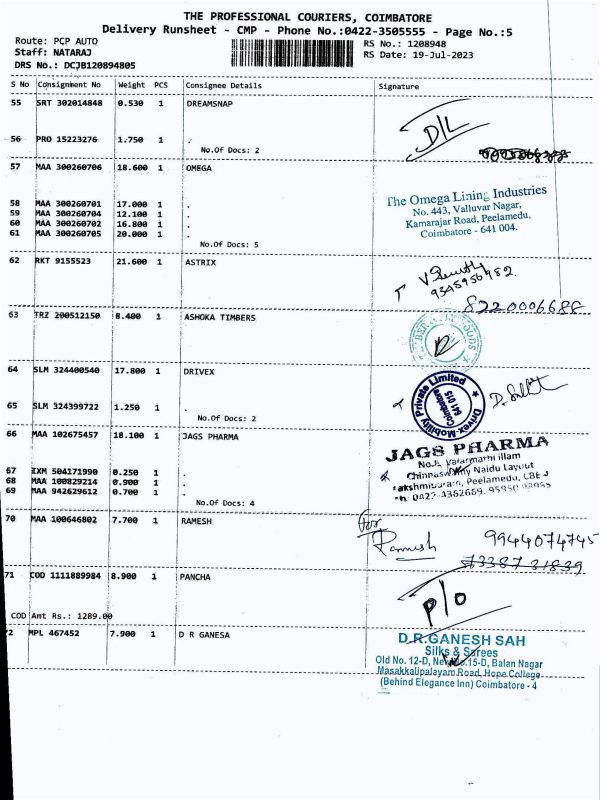 THE PROFESSIONAL COURIERS, COIMBATORE
Delivery Runsheet - CMP - Phone No.:0422-3505555 - Page No.:5
Route: PCP AUTO
Staff: NATARAJ
DRS No.: DCJB120894805
RS No.: 1208948
RS Date: 19-Jul-2023
S No Consignment No Weight PCS Consignee Details Signature
55 SRT 302014848 0.530 1 DREAMSNAP
D/L
56 PRO 15223276 1.750 1 .
No.Of Docs: 2
57 MAA 300260706 18.600 1 OMEGA
58 MAA 300260701 17.000 1 .
59 MAA 300260704 12.100 1 .
60 MAA 300260702 16.800 1 .
61 MAA 300260705 20.000 1 .
No.Of Docs: 5
The Omega Lining Industries
No. 443, Valluvar Nagar,
Kamarajar Road, Peelamedu,
Coimbatore - 641 004.
62 RKT 9155523 21.600 1 ASTRIX
8220006688
63 TRZ 200512150 8.400 1 ASHOKA TIMBERS
64 SLM 324400540 17.800 1 DRIVEX
65 SLM 324399722 1.250 1 .
No.Of Docs: 2
Drivex Mobility Private Limited
Coimbatore
641 015
66 MAA 102675457 18.100 1 JAGS PHARMA
67 IXM 504171990 0.250 1 .
68 MAA 100829214 0.900 1 .
69 MAA 942629612 0.700 1 .
No.Of Docs: 4
JAGS PHARMA
Valarmathi illam
Chinnaswamy Naidu Layout
Peelamedu,
70 MAA 100646802 7.700 1 RAMESH
for
Ramesh
9944074745
71 COD 1111889984 8.900 1 PANCHA
COD Amt Rs.: 1289.00
P/O
72 MPL 467452 7.900 1 D R GANESA
D.R.GANESH SAH
Silks & Sarees
Old No. 12-D, New No.15-D, Balan Nagar
Masakkalipalayam Road, Hope College
(Behind Elegance Inn) Coimbatore - 4